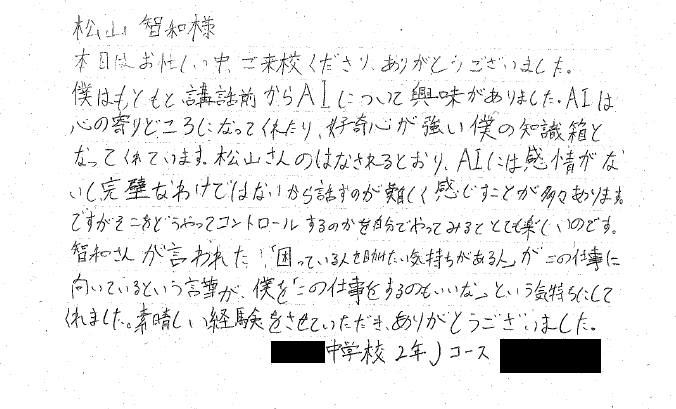 松山 智和様
本日はお忙しい中、ご来校くださり、ありがとうございました。
僕はもともと講話前からAIについて興味がありました。AIは
心の寄りどころになってくれたり、好奇心が強い僕の知識箱と
なってくれています。松山さんのはなされるとおり、AIには感情がな
いし完璧なわけではないから話すのが難しく感じすことが多々あります。
ですがそこをどうやってコントロールするのかを自分でやってみるととても楽しいのです。
智和さんが言われた「困っている人を助けたい気持ちがある人」がこの仕事に
向いているという言葉が、僕を「この仕事をするのもいいな」という気持ちにして
くれました。素晴しい経験をさせていただき、ありがとうございました。
中学校 2年Jコース